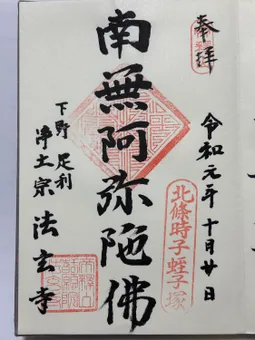 奉拝
令和元年十月廿日
北條時子蛭子塚
南無阿弥陀佛
下野 足利
浄土宗 法玄寺